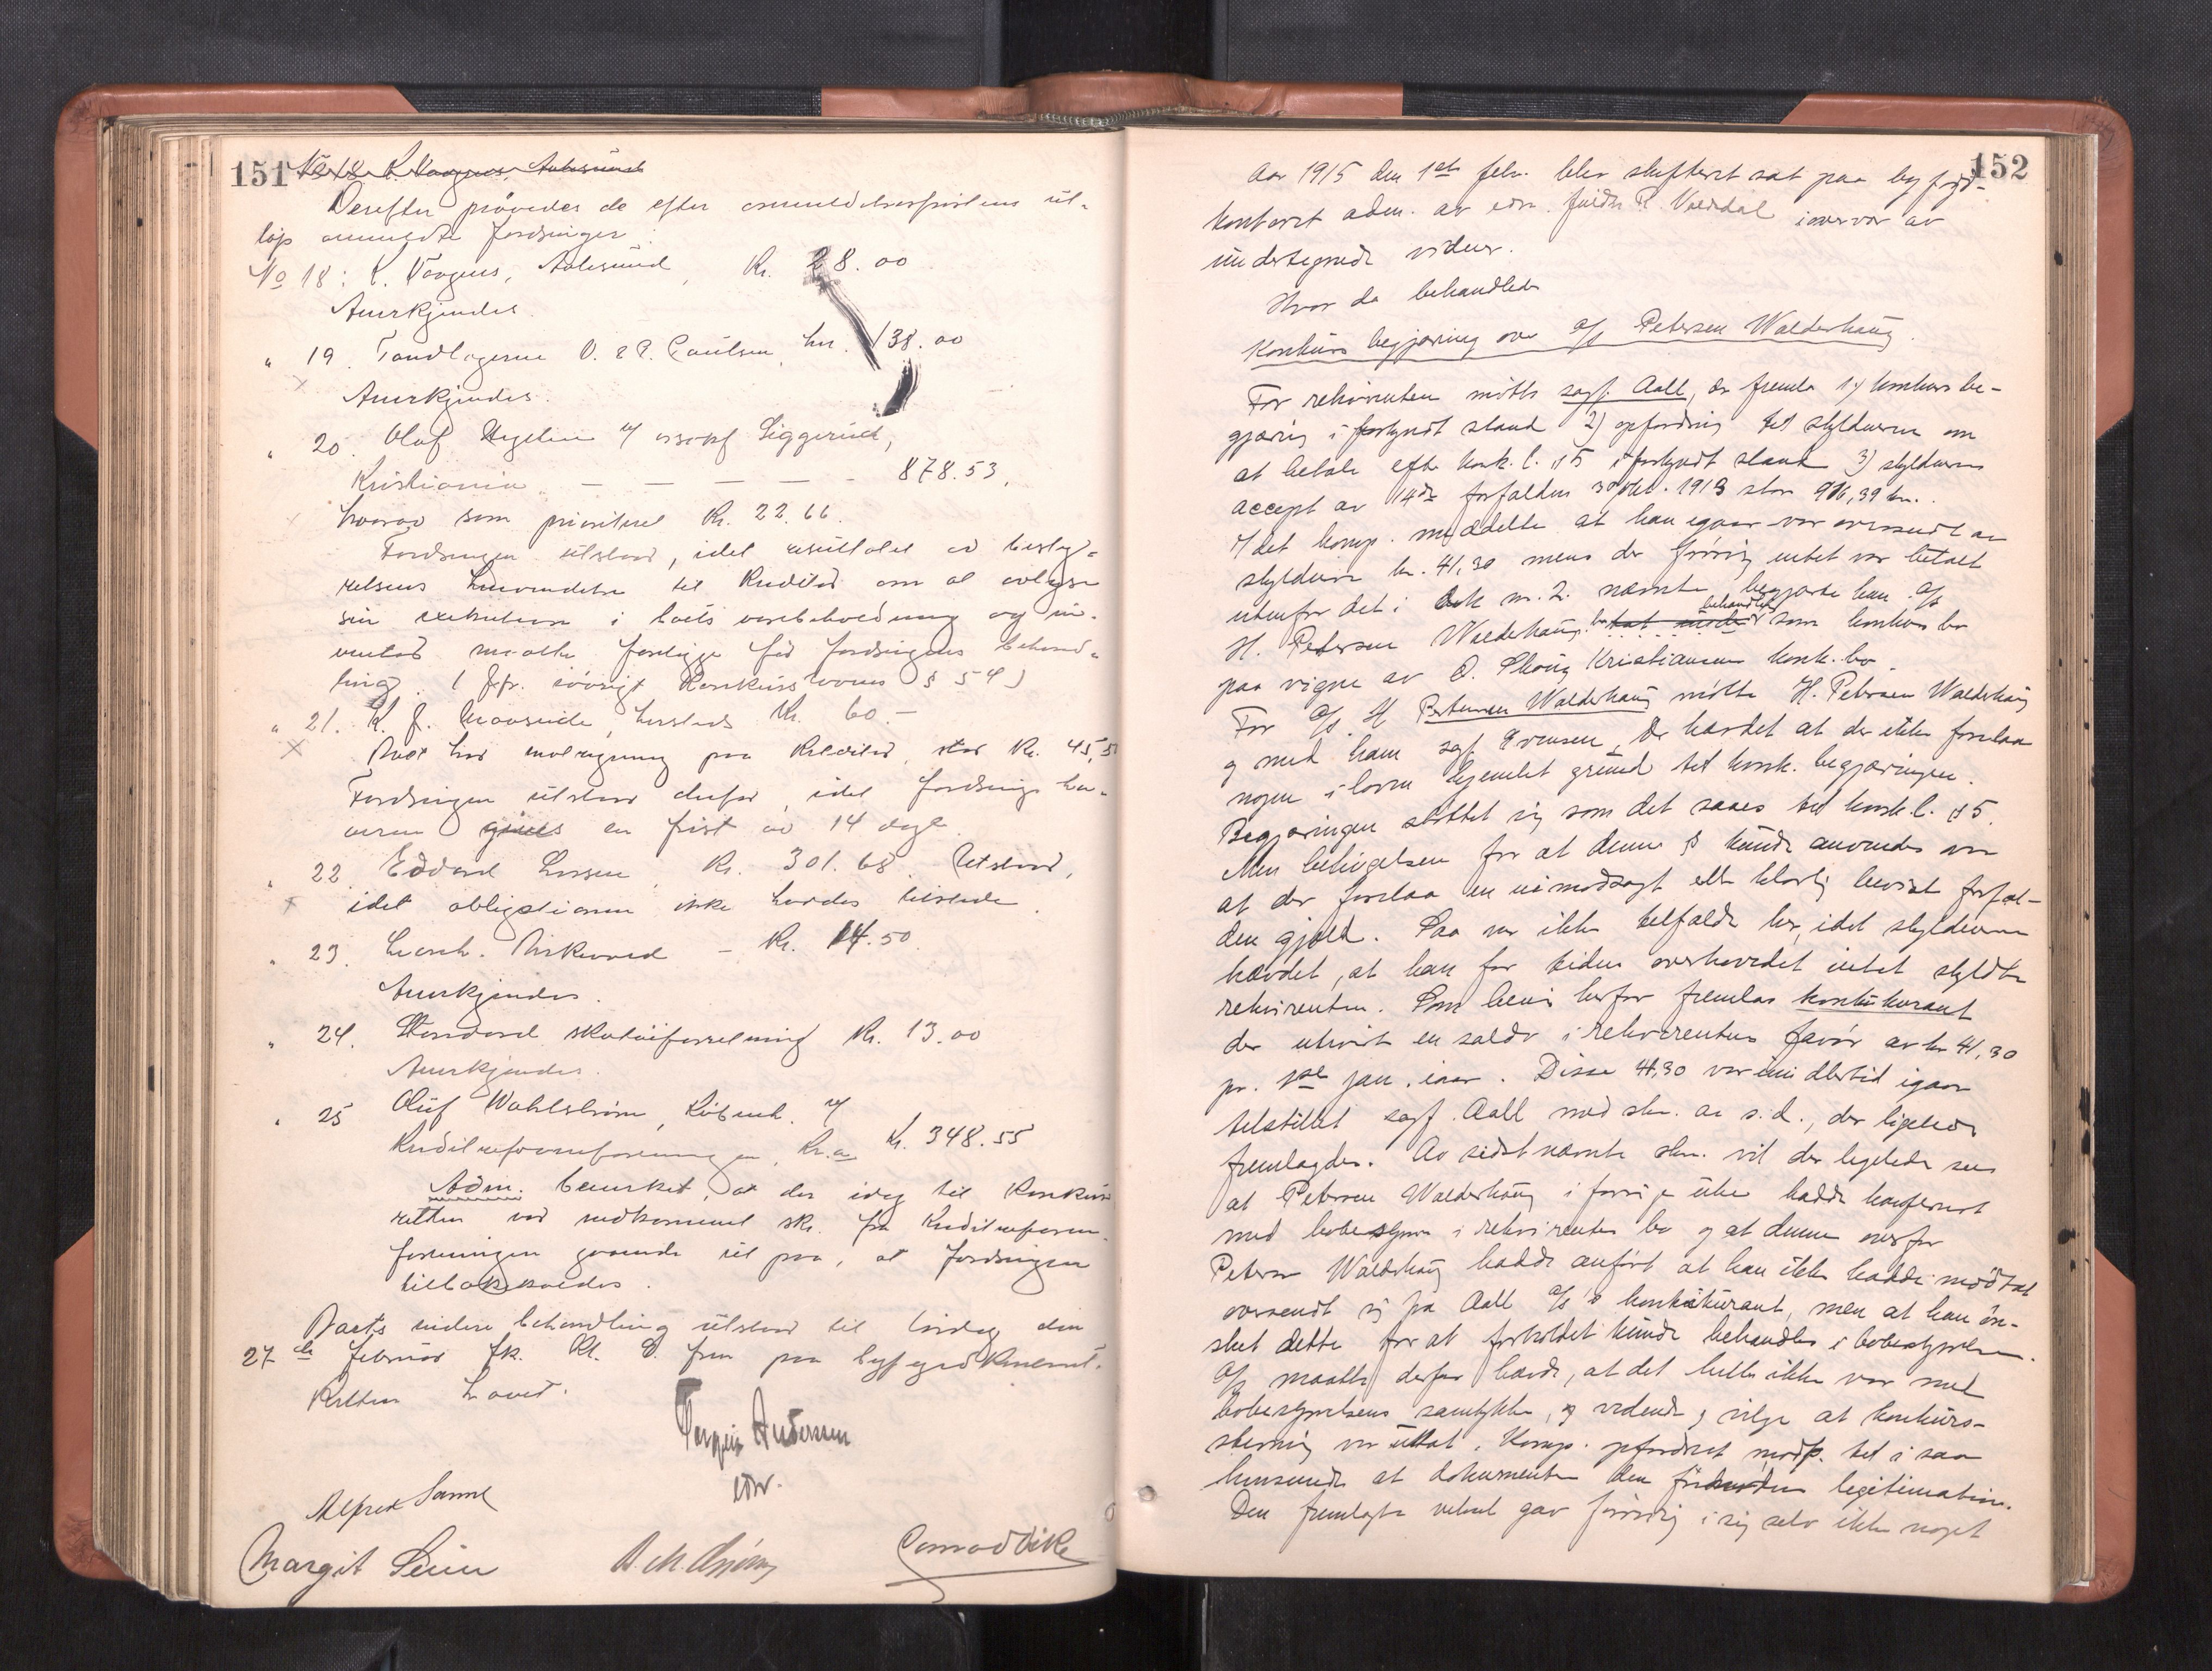 151 No 18 K. Vaagnes, Aalesund
Derefter prøvedes de efter anmeldelsesfristens ut-
løp anmeldte fordringer:
No 18: K. Vaagnes, Aalesund, Kr. 28.00
Anerkjendes.
" 19. Tandlægerne O. & P. Paulsen, her. 138.00
Anerkjendes.
" 20. Olaf Hegelin v/ orsakf Siggerud,
Kristiania — — — — - 878.53,
hvorav som prioritert Kr. 22.66.
Fordringen utstaar, idet resultatet av besty-
relsens henvendelse til Kreditor om at avlyse
sin exekution i boets varebeholdning og in-
ventar maatte foreligge før fordringens behand-
ling. (Jfr. iøvrigt Konkurslovens § 54)
" 21. K. J. Moasmile, hersteds Kr. 60.-
Boet har motregning paa Kreditor, stor Kr. 45,5
Fordringen utstaar derfor, idet fordrings ha-
veren gives en frist av 14 dage.
" 22. Edvard Larsen, Kr. 301.68. Utstaar,
idet obligationen ikke havdes tilstede.
" 23. Leonh. Kirkevaad - Kr. 14.50.
Anerkjendes.
" 24. Standard skotøiforretning Kr. 13.00
Anerkjendes.
" 25 Oluf Wahlstrøm, Købmd. v/
Kreditreformforeningen, Kr.a. Kr. 348.55
Adm. bemerket, at der idag til Konkurs
retten var indkommet skr. fra Kreditreform-
foreningen gaaende ut paa, at fordringen
tilbakekaldes.
Boets videre behandling utstaar til lørdag den
27de februar fk. Kl. 9. frm paa byfogedkontoret.
Retten hævet.
Torgeir Andersen
edv.
Alfred Sanne
Margit Seim Conrad Vik
152
Aar 1915 den 1ste febr. blev skifteret sat paa byfogd-
kontoret adm. av edv. fuldm R. Valddal i overvær av
undertegnede vidner.
Hvor da behandledes
Konkurs begjæring over A/S Petersen Walderhaug.
For rekvirenten møtte sagf. Aall, der fremla 1) konkurs be-
gjæring i forkyndt stand 2) opfordring til skyldneren om
at betale efter konk. l. § 5 i forkyndt stand 3) skyldnerens
accept av 14de forfalden 30 okt. 1913 stor 916,39 kr..
I det komp. meddelte at han igaar var oversendt av
skyldneren kr. 41,30 mens der forøvrig intet var betalt
utenfor det i dok nr. 2. nævnte begjærte han A/S
H. Petersen Walderhaug's bo tat under behandlet som konkurs bo
paa vegne av O. Skaug Kristiansen konk. bo.
For A/S H Petersen Walderhaug møtte H. Petersen Walderhaug
og med ham sagf Evensen, der hævdet at der ikke forelaa
nogen i loven hjemlet grund til konk. begjæringen.
Begjæringen støttet sig som det saaes til konk. l. § 5.
Men betingelsen for at denne § kunde anvendes var
at der forelaa en uimodsagt eller klarlig bevist forfal-
den gjæld. Saa var ikke tilfælde her, idet skyldneren
hævdet, at han for tiden overhovedet intet skyldte
rekvirenten. Som bevis herfor fremlas kontokurant
der utviste en saldo i rekvirentens favør av kr 41,30
pr. 1ste jan. iaar. Disse 41,30 var imidlertid igaar
tilstillet sagf. Aall med skr. av s. d., der ligeledes
fremlagdes. Av sidstnævnte skr. vil der ligeledes sees
at Petersen Walderhaug i forrige uke hadde konferert
med bobestyrer i rekvirentens bo og at denne overfor
Petersen Walderhaug hadde anført at han ikke hadde mottat
oversendt sig fra Aall A/S's kontokurant, men at han øn-
sket dette for at forholdet kunde behandles i bobestyrelsen.
A/S maatte derfor hævde, at det heller ikke var med
bobestyrelsens samtykke, og vidende og vilje at konkurs-
stevning var uttat. Komp. opfordret modp. til i saa
henseende at dokumentere den fornødne legitimation.
Den fremlagte veksel gav forøvrig i sig selv ikke noget